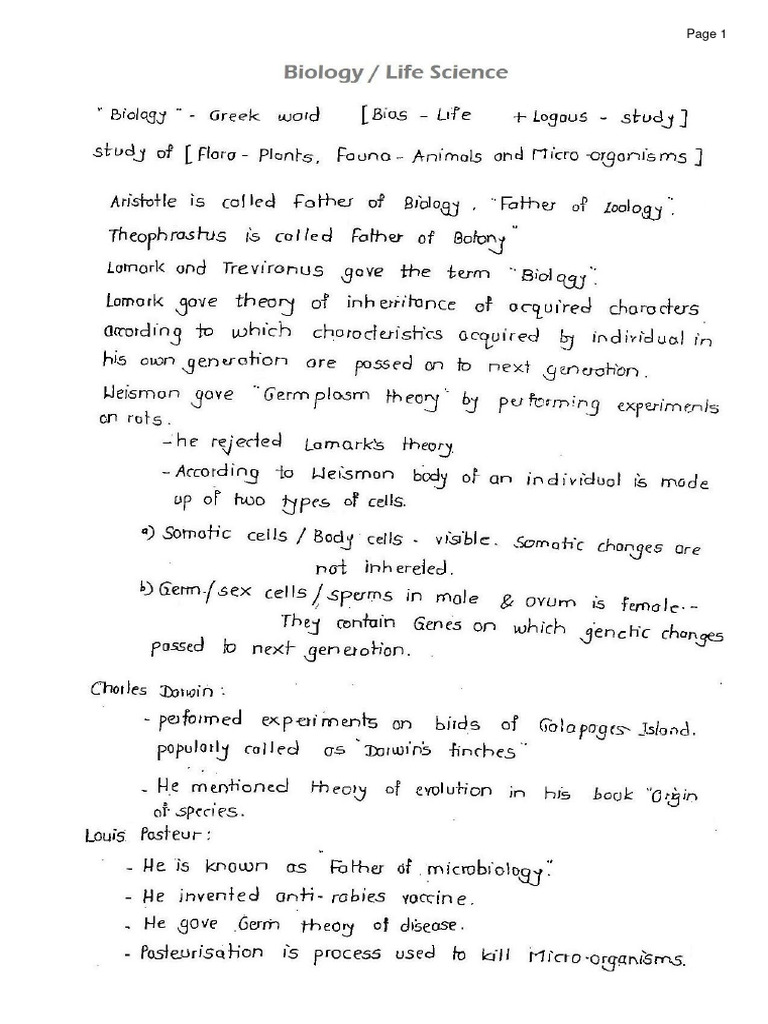 Page 1
Biology / Life Science
" Biology " - Greek word [Bios - Life + Logous - study]
study of [ Flora - Plants, Fauna - Animals and Micro-organisms ]
Aristotle is called Father of Biology, "Father of Zoology".
Theophrastus is called Father of Botony"
Lamark and Treviranus gave the term "Biology".
Lamark gave theory of inherritance of acquired characters
according to which characteristics acquired by individual in
his own generation are passed on to next generation.
Weisman gave "Germplasm theory" by performing experiments
on rats.
- he rejected Lamark's theory
- According to Weisman body of an individual is made
up of two types of cells.
a) Somatic cells / Body cells - visible. Somatic changes are
not inhereted.
b) Germ / sex cells / sperms in male & ovum is female.-
They contain Genes on which genetic changes
passed to next generation.
Charles Darwin :
- performed experiments on birds of Galapages Island.
popularly called as "Darwin's finches"
- He mentioned theory of evolution in his book "Origin
of species.
Louis Pasteur :
- He is known as "Father of microbiology".
- He invented anti-rabies vaccine.
- He gave Germ theory of disease.
- Pasteurisation is process used to kill Micro-organisms.